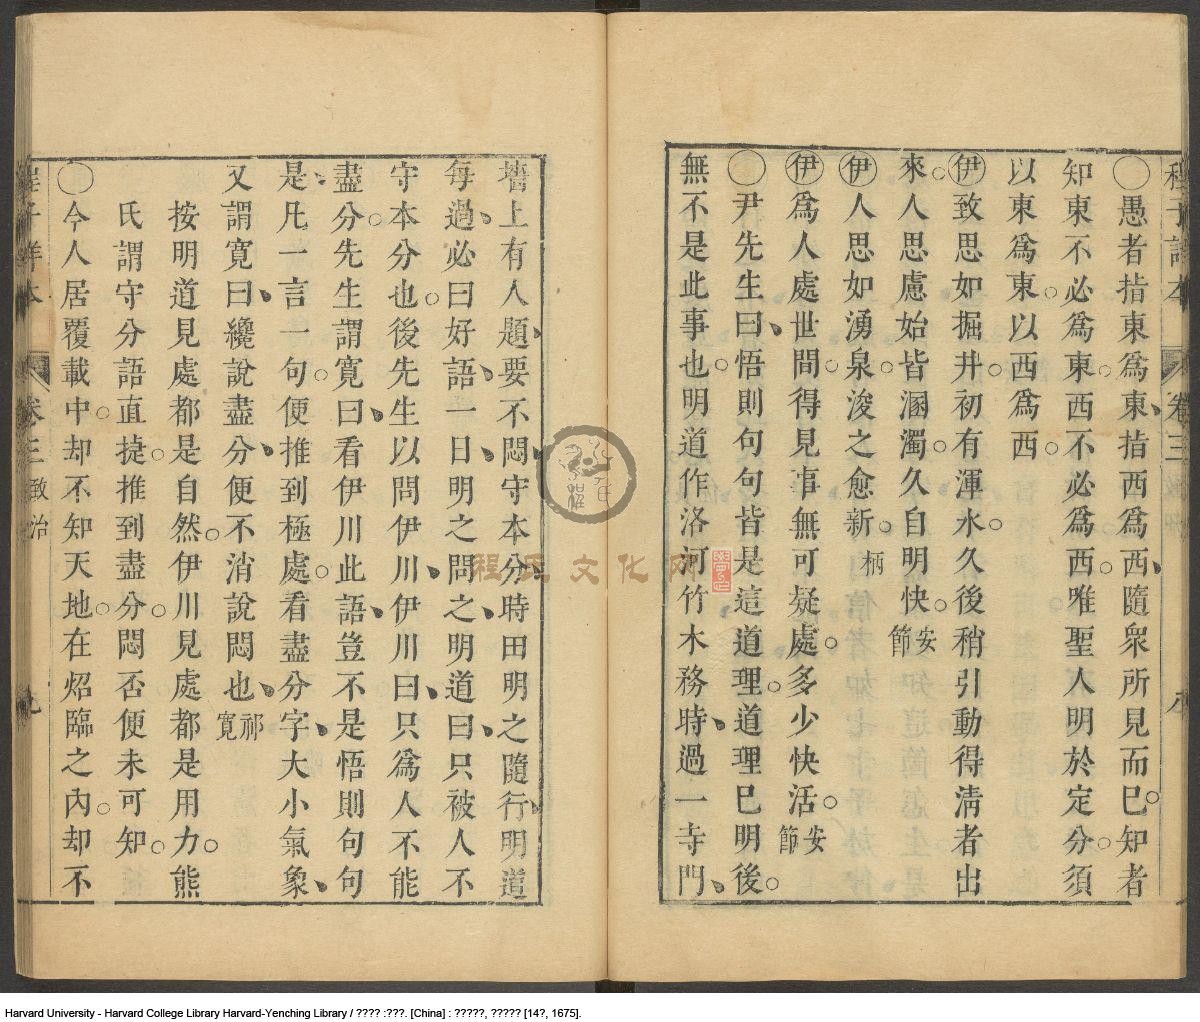 程子詳本 卷三 八
〇愚者指東為東指西為西隨衆所見而已知者
知東不必為東西不必為西唯聖人明於定分須
以東為東以西為西
伊致思如掘井初有渾水久後稍引動得清者出
來人思慮始皆溷濁久自明快 安節
伊人思如湧泉浚之愈新 柄
伊為人處世間得見事無可疑處多少快活 安節
〇尹先生曰悟則句句皆是這道理道理已明後
無不是此事也明道作洛河竹木務時過一寺門
墻上有人題要不悶守本分時田明之隨行明道
每過必曰好語一日明之問之明道曰只被人不
守本分也後先生以問伊川伊川曰只為人不能
盡分先生謂寬曰看伊川此語豈不是悟則句句
是凡一言一句便推到極處看盡分字大小氣象
又謂寬曰纔說盡分便不消說悶也 祁寬
按明道見處都是自然伊川見處都是用力熊
氏謂守分語直捷推到盡分悶否便未可知
〇今人居覆載中却不知天地在炤臨之內却不
程子詳本 卷三 致治 九
程氏文化网
Harvard University - Harvard College Library Harvard-Yenching Library / ???? :???. [China] : ?????, ????? [14?, 1675].